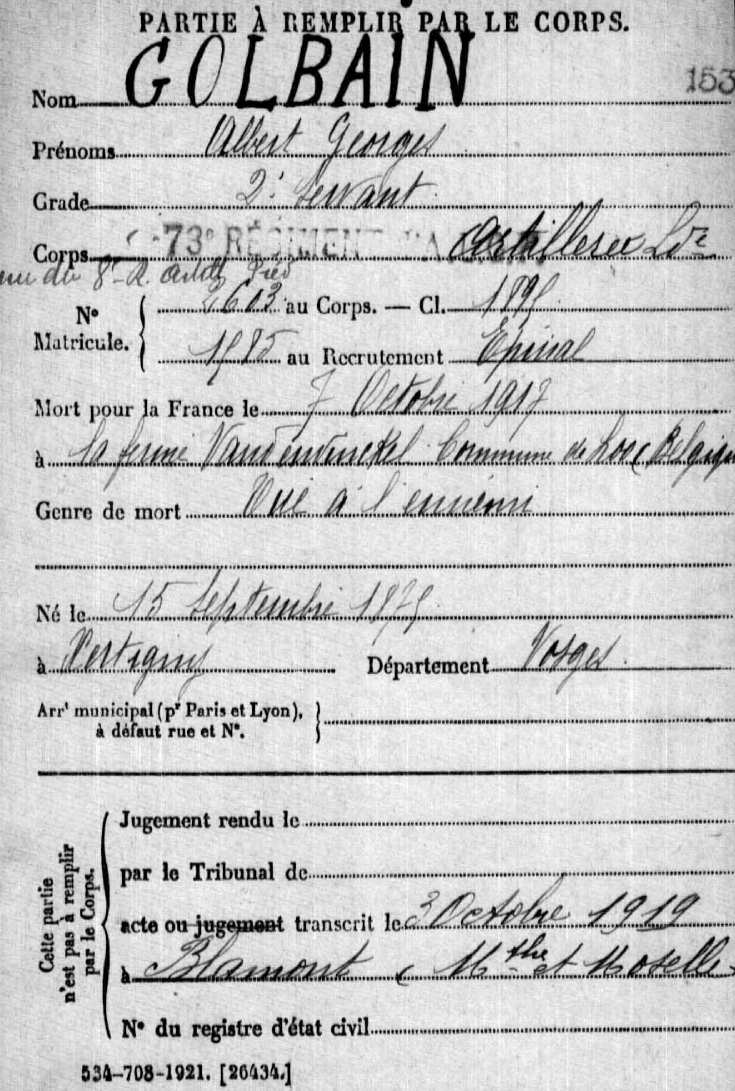 PARTIE À REMPLIR PAR LE CORPS.
Nom GOLBAIN 153
Prénoms Albert Georges
Grade 2e Servant
Corps 73e RÉGIMENT D'A Artillerie Lde
du 8e R. Artill Pied
No Matricule. 2603 au Corps. — Cl. 1895
1585 au Recrutement Epinal
Mort pour la France le 7 Octobre 1917
à la ferme Commune de Looc Belgique
Genre de mort Tué à l'ennemi
Né le 15 Septembre 1875
à Xertigny Département Vosges
Arrt municipal (pr Paris et Lyon),
à défaut rue et No.
Cette partie n'est pas à remplir par le Corps.
Jugement rendu le
par le Tribunal de
acte ou jugement transcrit le 3 Octobre 1919
à Blamont (Mthe et Moselle
No du registre d'état civil
534-708-1921. [26434.]